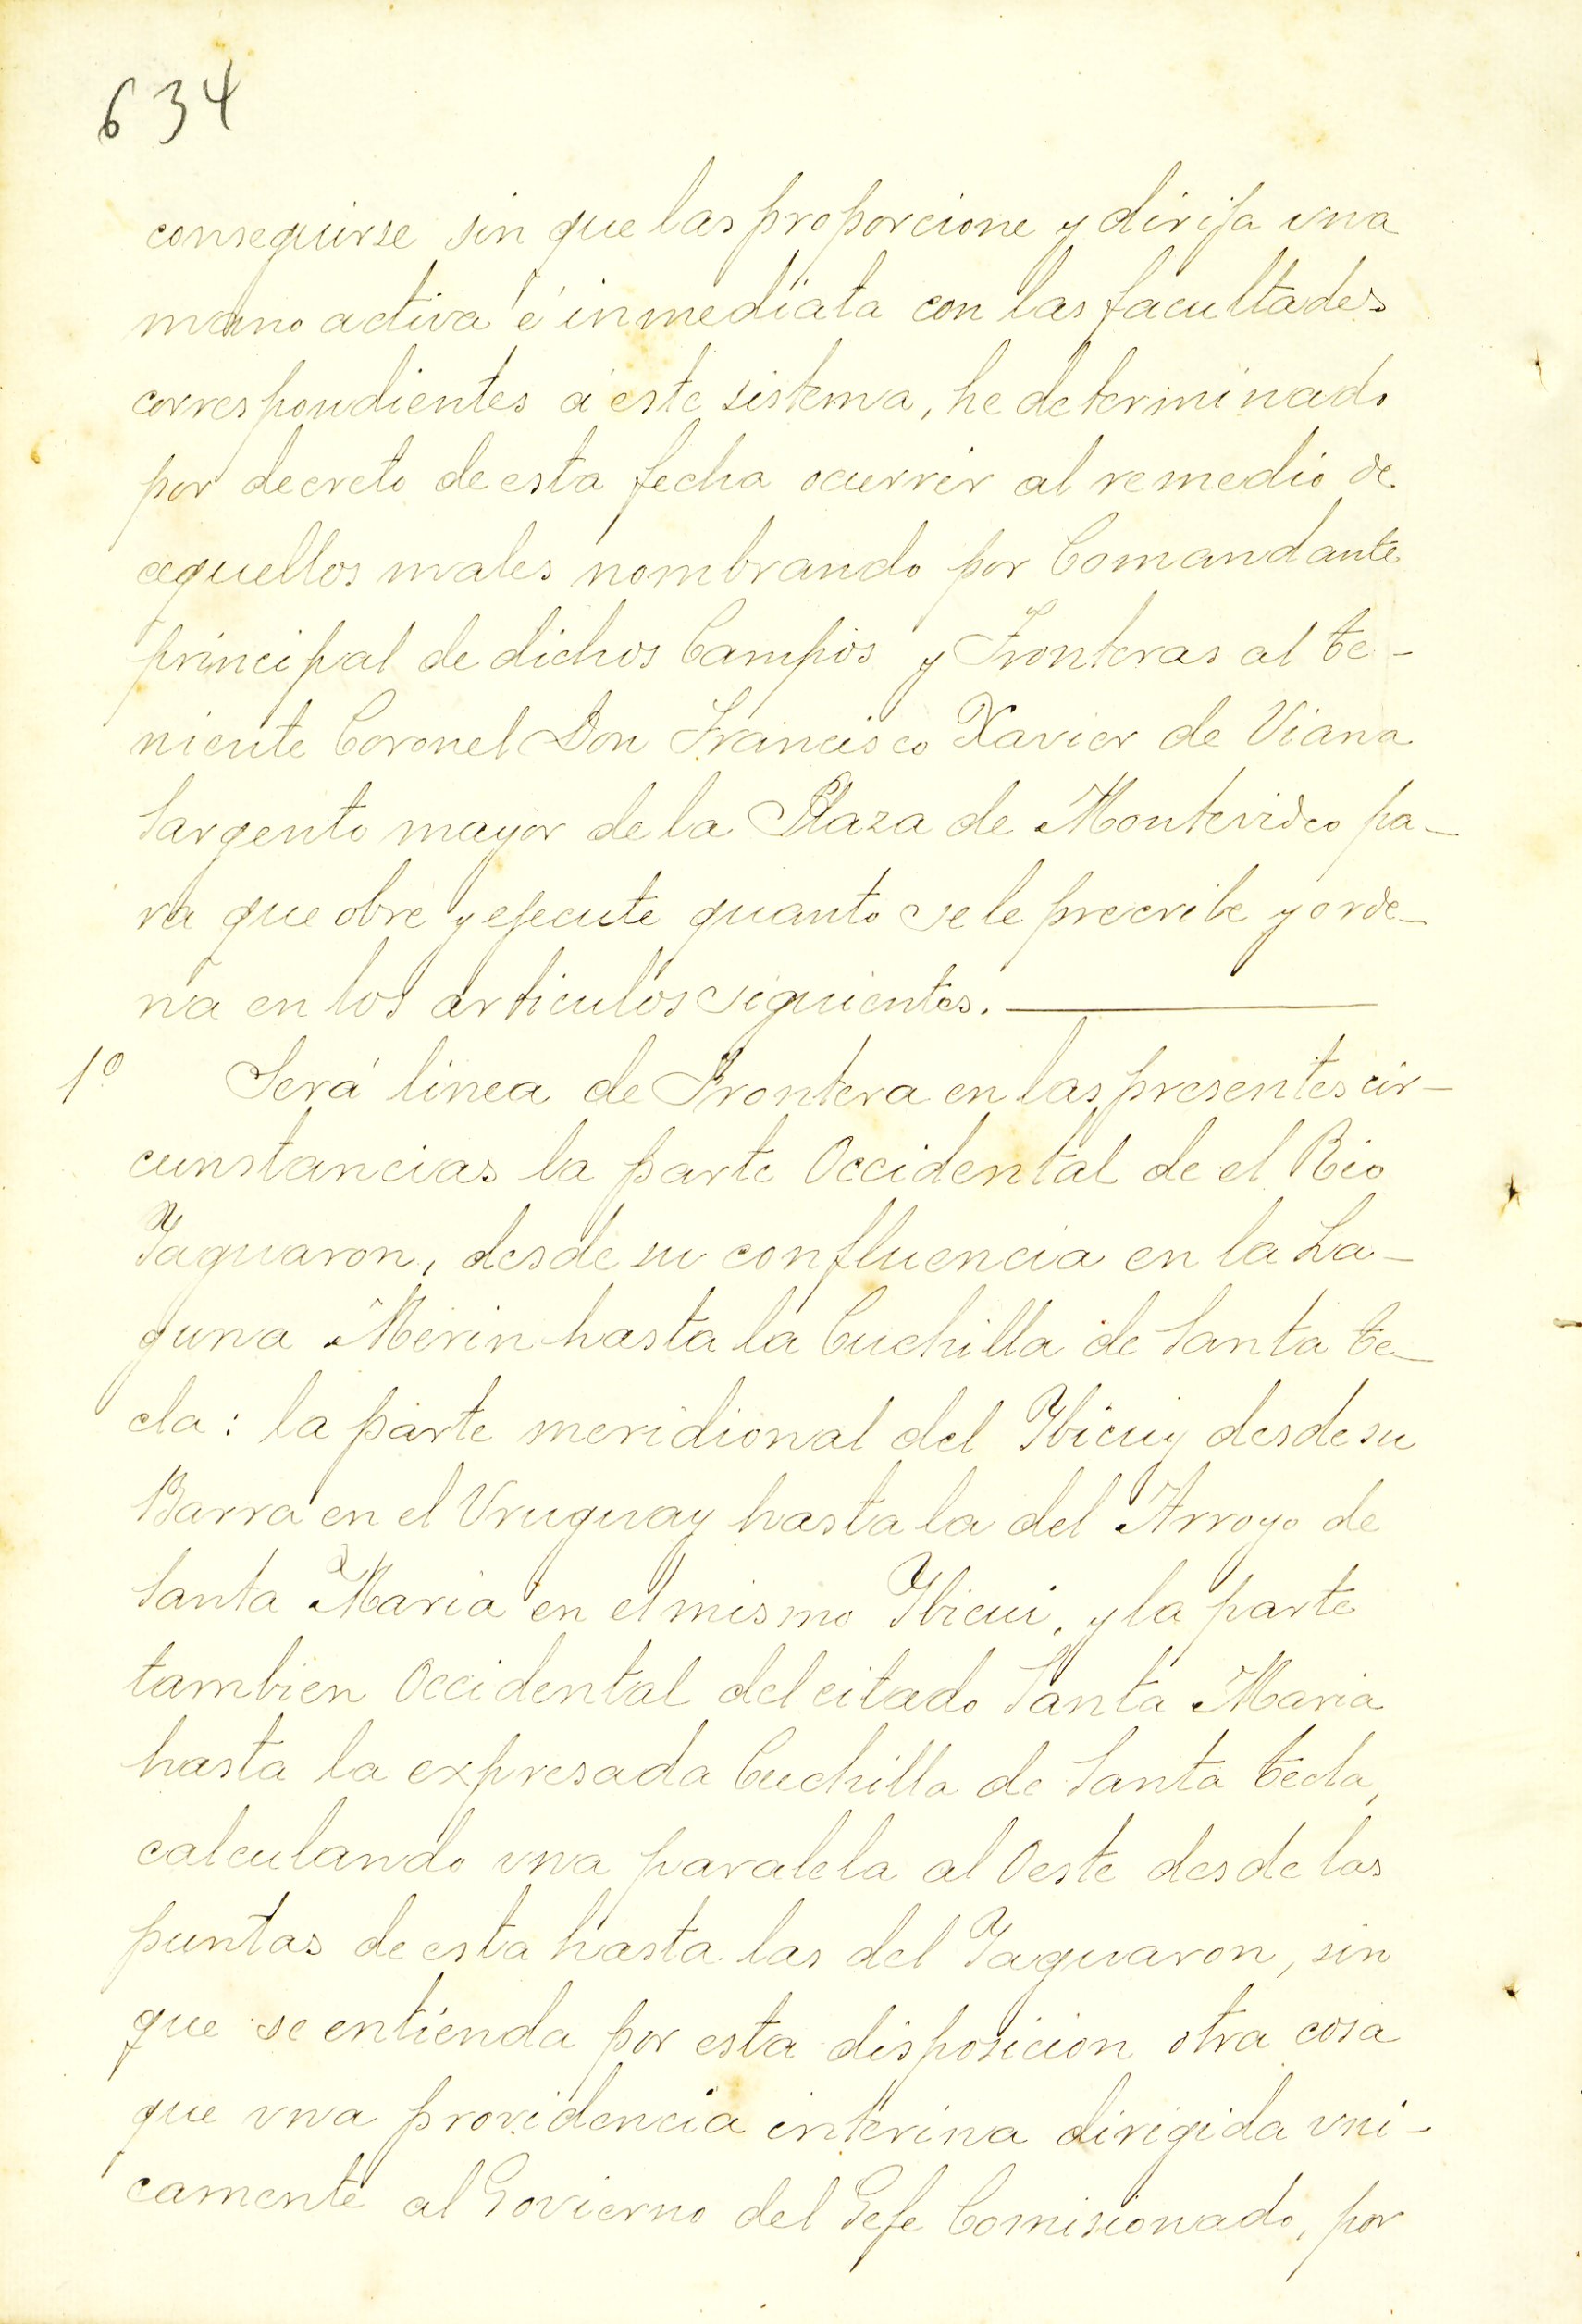 634
conseguirse sin que las proporcione y dirija vna
mano activa é inmediata con las facultades
correspondientes á este sistema, he determinado
por decreto de esta fecha ocurrir al remedio de
aquellos males nombrando por Comandante
principal de dichos Campos y Fronteras al te-
niente Coronel Don Francisco Xavier de Viana
Sargento mayor de la Plaza de Montevideo pa-
ra que obre y ejecute quanto se le prescribe y orde-
na en los articulos siguientes.
1º Será linea de Frontera en las presentes cir-
cunstancias la parte Occidental de el Rio
Yaguaron, desde su confluencia en la La-
guna Merin hasta la Cuchilla de Santa te-
cla: la parte meridional del Ybicuy desde su
Barra en el Vruguay hasta la del Arroyo de
Santa Maria en el mismo Ybicui, y la parte
tambien Occidental del citado Santa Maria
hasta la expresada Cuchilla de Santa tecla,
calculando vna paralela al Oeste desde las
puntas de esta hasta las del Yaguaron, sin
que se entienda por esta disposicion otra cosa
que vna providencia interina dirigida vni-
camente al Govierno del Gefe Comisionado, por